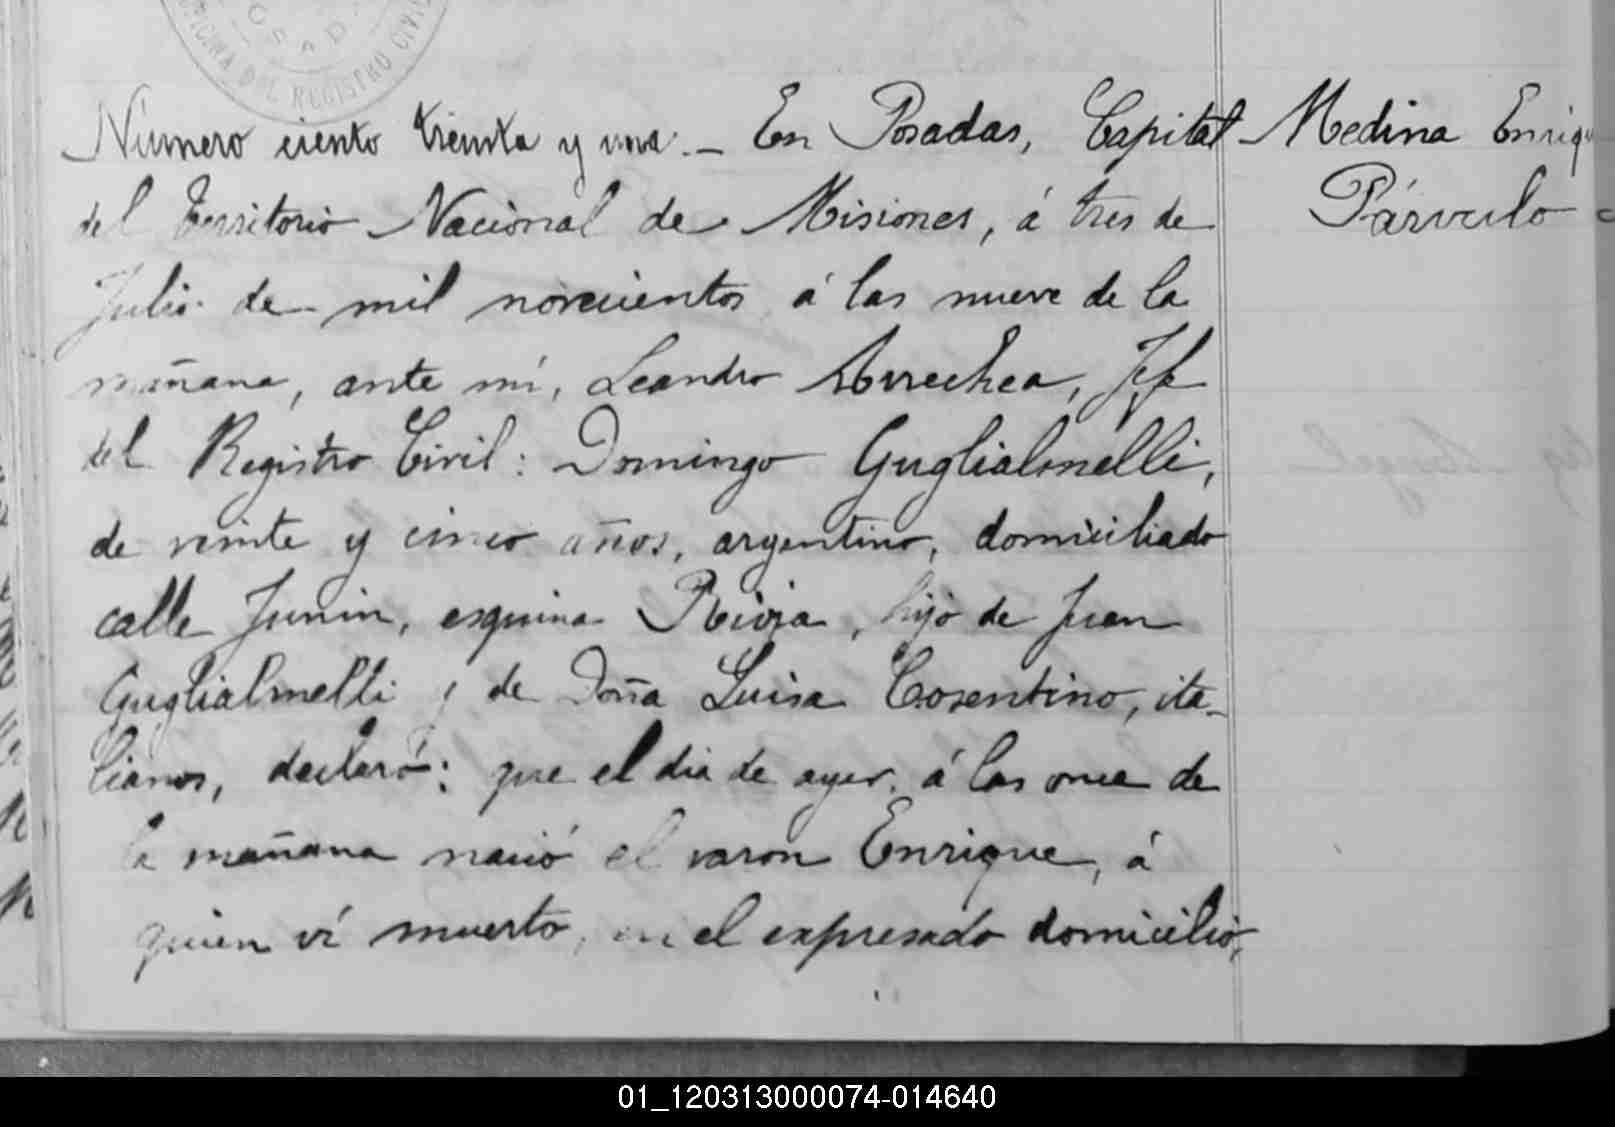 POSAD
OFICINA DEL REGISTRO CIVIL
Número ciento treinta y una.— En Posadas, Capital
del Territorio Nacional de Misiones, á tres de
Julio de mil novecientos á las nueve de la
mañana, ante mí, Leandro Arrechea, Jefe
del Registro Civil: Domingo Guglialmelli,
de veinte y cinco años, argentino, domiciliado
calle Junin, esquina Rioja, hijo de Juan
Guglialmelli y de Doña Luisa Cosentino, ita-
lianos, declaró: que el dia de ayer, á las once de
la mañana nació el varon Enrique, á
quien ví muerto, en el expresado domicilio,
Medina Enriqu
Párvulo
01_120313000074-014640